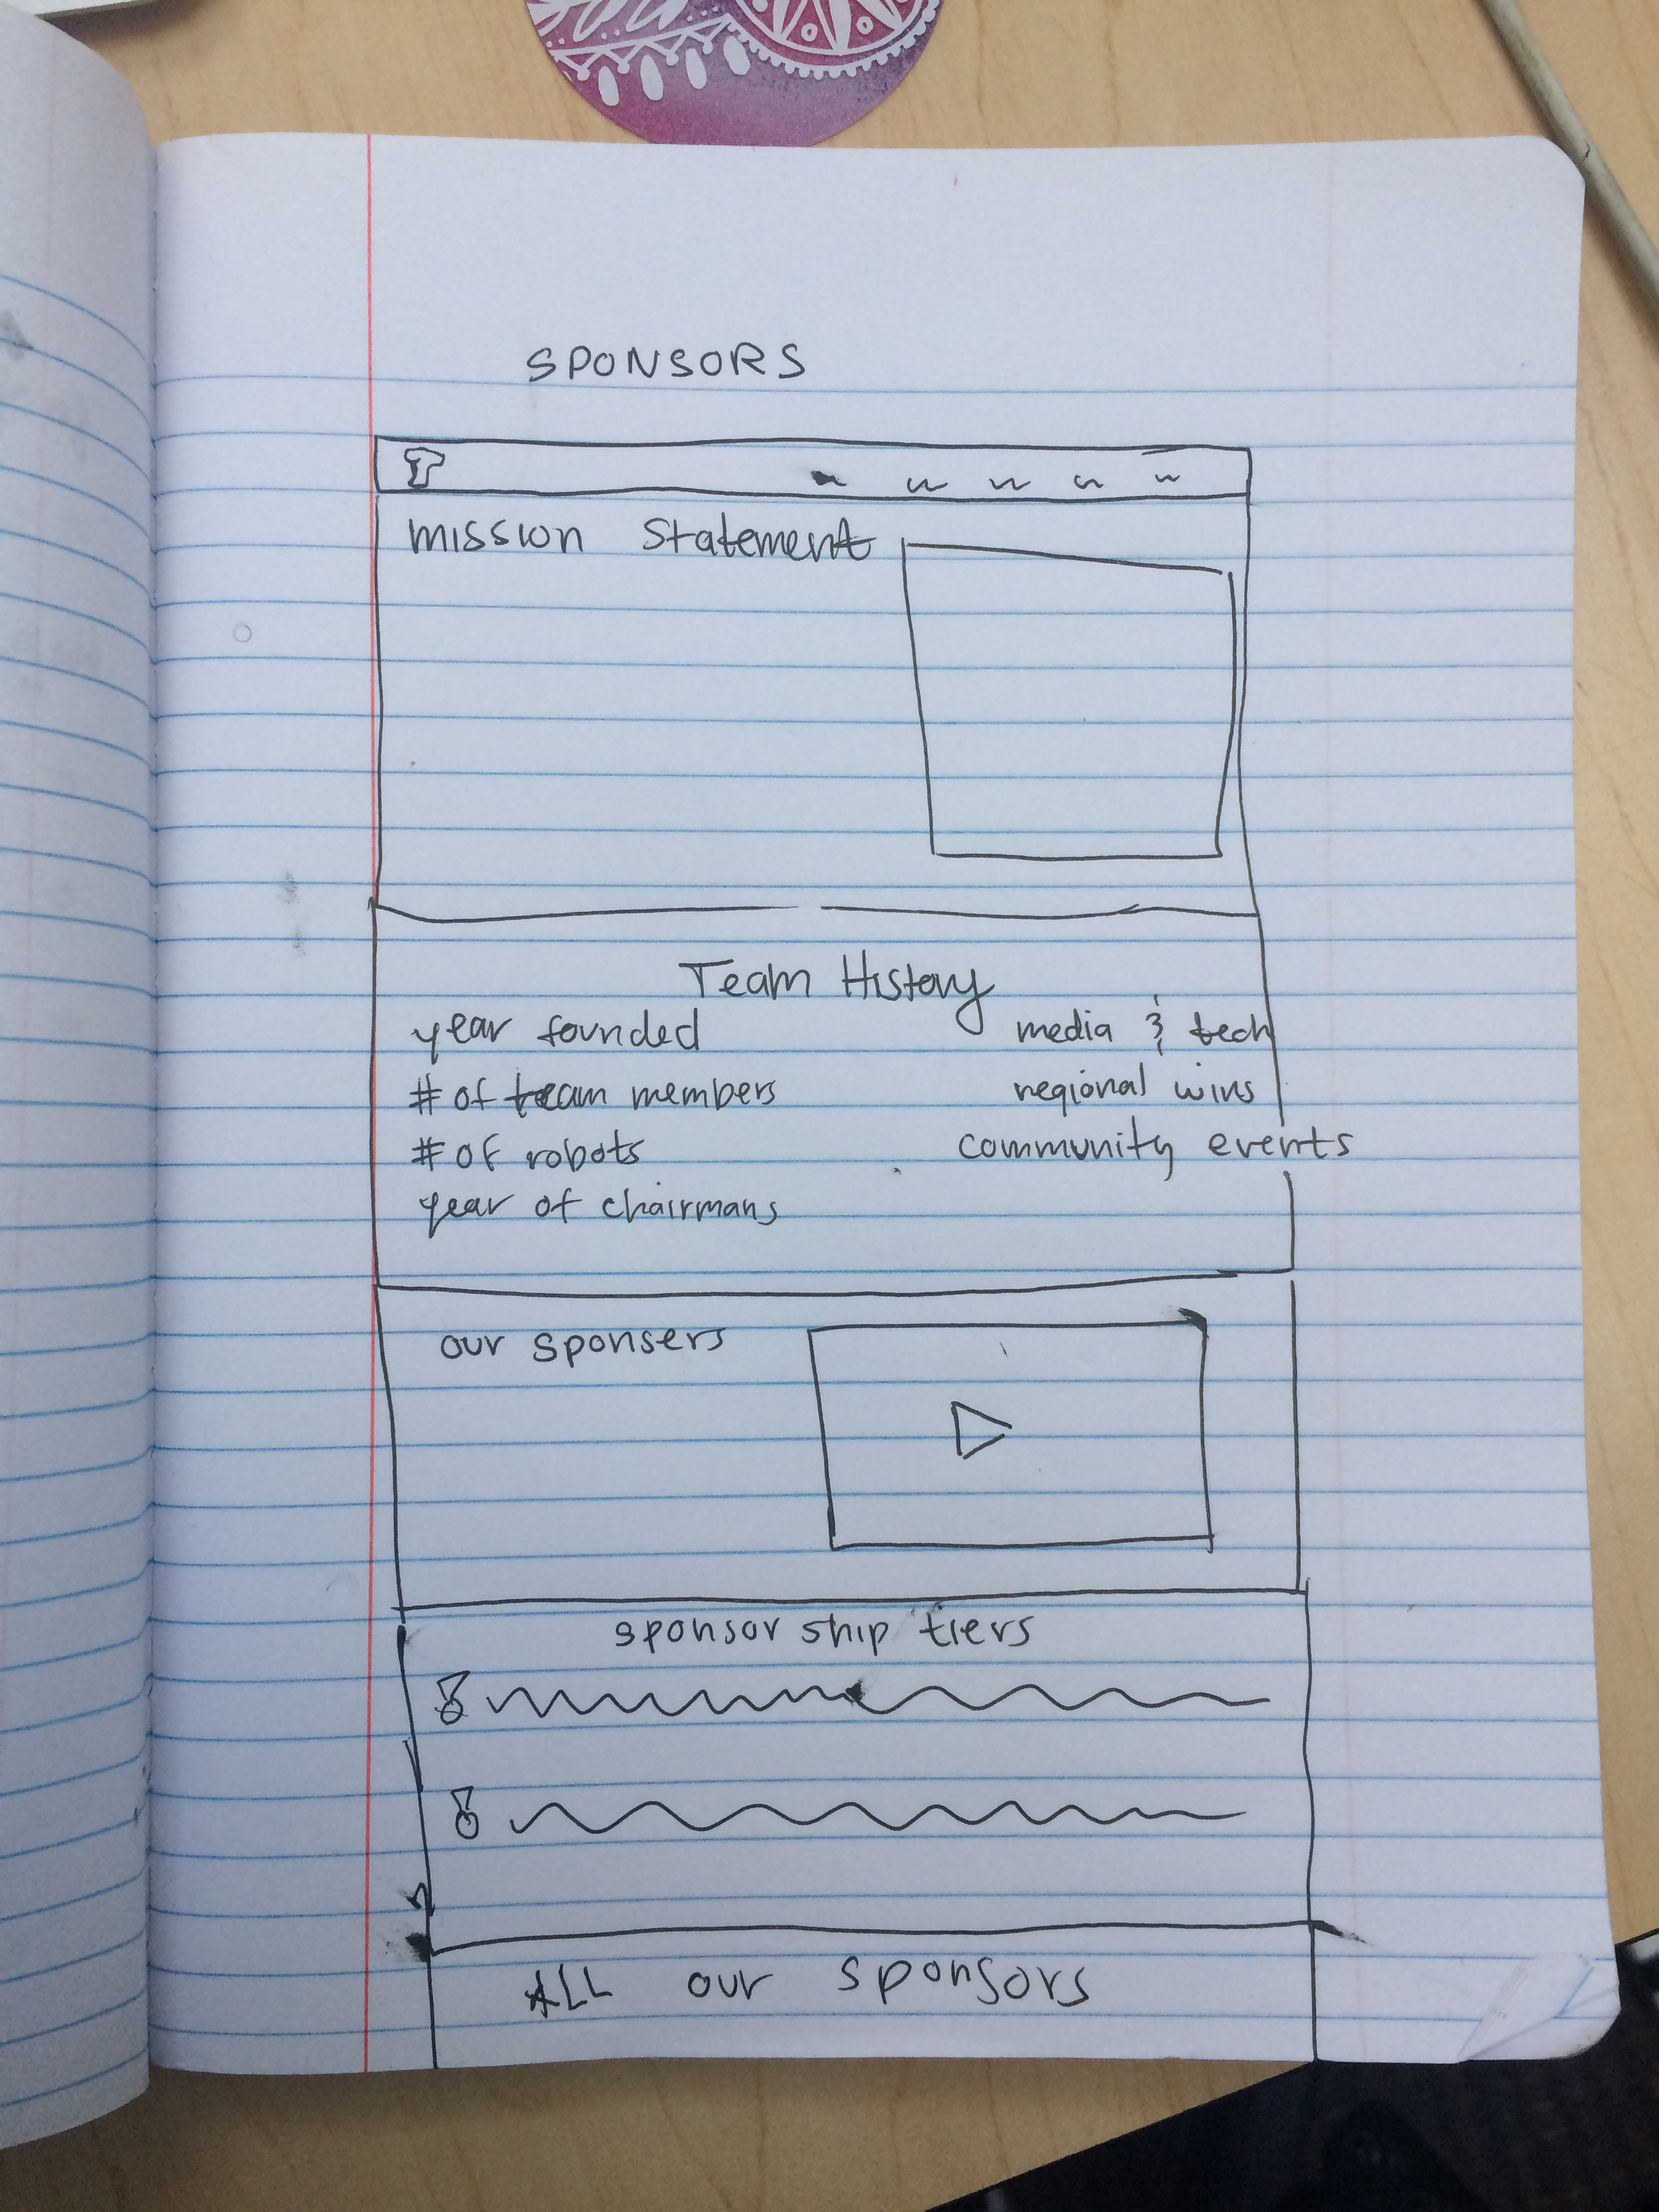 SPONSORS
mission Statement
Team History
year founded
# of team members
# of robots
year of chairmans
media & tech
regional wins
community events
our sponsers
sponsor ship tiers
ALL our sponsors